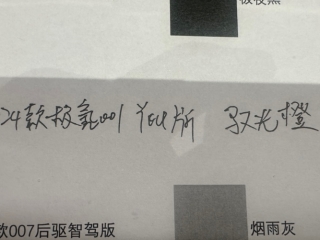 极夜黑
24款极氪001 YOU版 驭光橙
款007后驱智驾版
烟雨灰